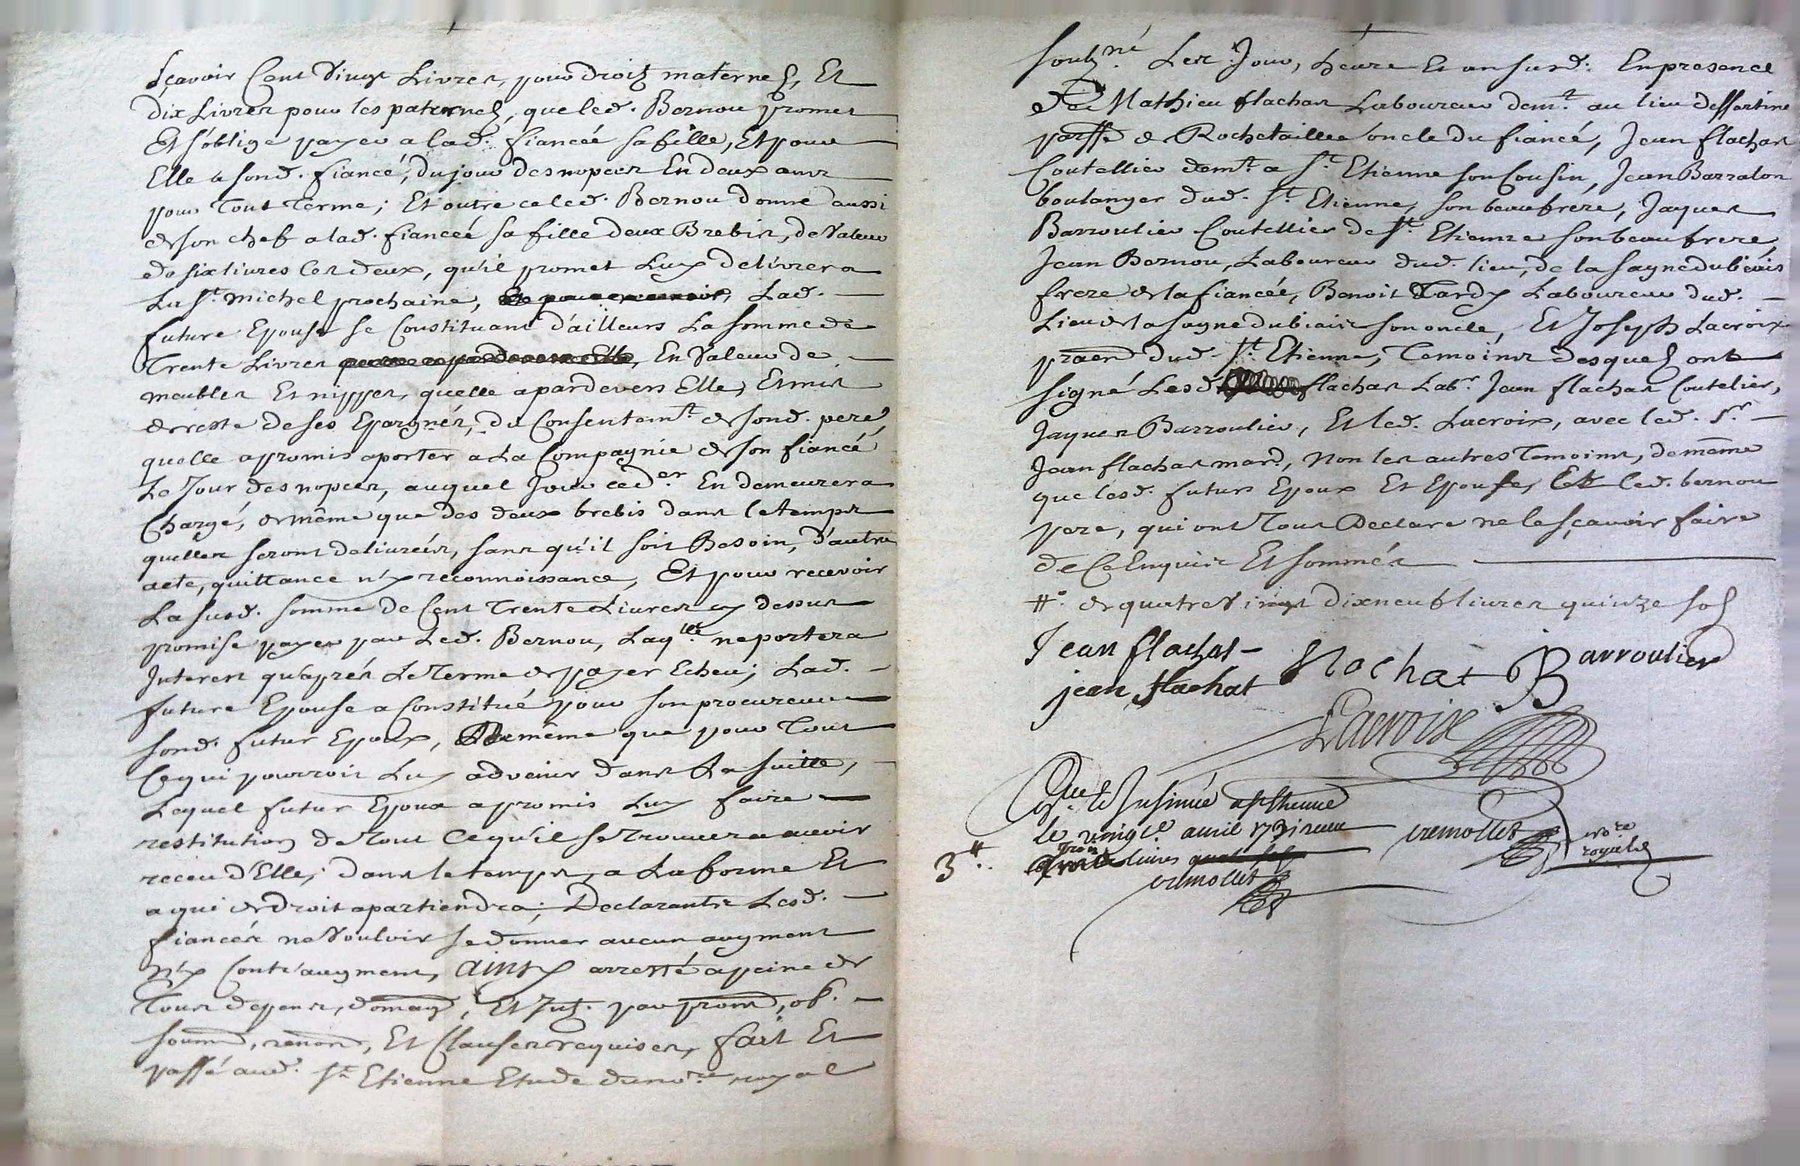 sçavoir Cent vingt Livres, pour droitz maternelz, Et
dix Livres pour les paternelz, que led. Bernou promet
Et s'oblige payer a lad. fiancée sa fille, Et pour
Elle a sond. fiancé, du jour des nopces En deux ans
pour tout terme; Et outre ce led. Bernou donne aussi
de son chef a lad. fiancée sa fille deux Brebis, de valeur
de six livres les deux, qu'il promet Luy delivrer a
La St. michel prochaine, Lad.
future Epouse se Constituant d'ailleurs La somme de
Trente Livres En valeur de
meubles Et nippes, quelle a pardevers Elle, Et mis
de reste de ses Epargnes, du Consentemt. de sond. pere,
quelle a promis aporter a La Compagnie de son fiancé
Le Jour des nopces, auquel Jour ced.er En demeurera
Chargé, de même que des deux brebis dans le temps
quelles seront delivrées, sans qu'il soit Besoin, d'autre
acte, quittance n'y reconnoissance, Et pour recevoir
La susd. somme de Cent Trente Livres cy dessus
promise payer par Led. Bernou, Laqlle. ne portera
Interest qu'aprés Le Terme de payer Echeu; Lad.
future Epouse a Constitué pour son procureur
sond. futur Epoux, de même que pour Tout
Ce qui pourroit Luy advenir dans La suitte,
Lequel futur Epoux a promis Luy faire
restitution de Tout Ce qu'il se trouvera avoir
receu d'Elle, dans le temps, a La forme Et
a qui de droit apartiendra; Declarants Lesd.
fiancés ne Vouloir se donner aucun augment
n'y Contr'augment, ainsy arresté a peine de
Tous depens, domag, Et Intz. par prom, ob.
soum, renon, Et Clauses requises, fait Et
passé aud. St. Etienne Etude du nore. royal
soubzné. Les Jour, heure Et an susd. En presence
de Mathieu flachat Laboureur demt. au lieu dessertine
parsse de Rochetaillee oncle du fiancé, Jean flachat
Coutellier demt. a St. Etienne son Cousin, Jean Barralon
boulanger dud. St. Etienne, son beaufrere, Jaques
Barroulier Coutellier de St. Etienne son beaufrere,
Jean Bernou, Laboureur dud. lieu, de la sagne dubiais
frere de la fiancée, Benoit Tardy Laboureur dud.
Lieu de la sagne dubiais son oncle, Et Joseph Lacroix
pratn dud. St. Etienne, Temoins desquelz ont
signé Lesd. flachat Labr. Jean flachat Coutelier,
Jaques Barroulier, Et led. Lacroix, avec led. Sr.
Jean flachat mard, Non les autres Temoins, de même
que lesd. futurs Epoux Et Epouse, led. bernou
pere, qui ont Tous Declare ne le sçavoir faire
de Ce Enquis Et sommés
#. de quatre vingt dixneuf livres quinze solz
Jean flachat
jean flachat flachat Barroulier
Lacroix
Con.lle Et Insinué a St. Etienne
le vingt avril 1731 receu
3#. trois livres
cremollet
cremollet
nore
royal